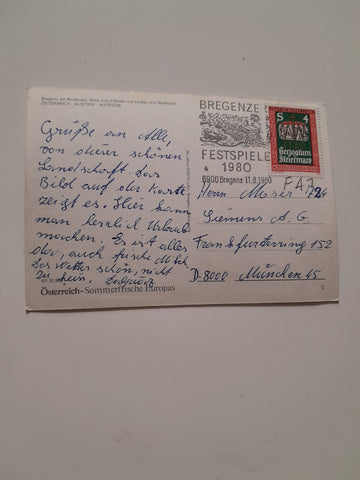 Bregenz am Bodensee, Blick vom Pfänder auf Lindau und Bodensee
ÖSTERREICH · AUSTRIA · AUTRICHE
Grüße an Alle,
von dieser schönen
Landschaft. Das
Bild auf der Karte
zeigt es. Hier kann
man herrlich Urlaub
machen. Es ist alles
da, auch frische Milch
Das Wetter schön, nicht
zu
Österreich - Sommerfrische Europas
BREGENZER
FESTSPIELE
1980
6900 Bregenz 11.8.1980
S 4
Herzogtum
Steiermark
FA7
Herrn Moser 724
Siemens A.G.
Frankfurterring 152
D-8000 München 45